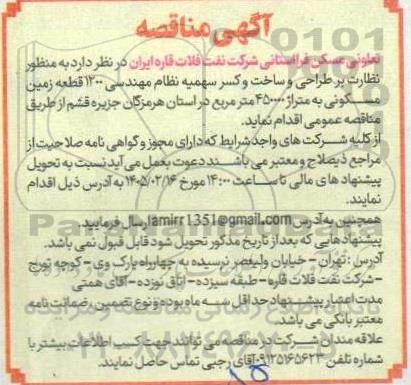 آگهی مناقصه
تعاونی مسکن فرااستانی شرکت نفت فلات قاره ایران در نظر دارد به منظور
نظارت بر طراحی و ساخت و کسر سهمیه نظام مهندسی ۱۲۰۰ قطعه زمین
مسکونی به متراژ ۴۵۰۰۰۰ متر مربع در استان هرمزگان جزیره قشم از طریق
مناقصه عمومی اقدام نماید.
از کلیه شرکت های واجد شرایط که دارای مجوز و گواهی نامه صلاحیت از
مراجع ذیصلاح و معتبر می باشند دعوت بعمل می آید نسبت به تحویل
پیشنهاد های مالی تا ساعت ۱۴:۰۰ مورخ ۱۴۰۵/۰۲/۱۴ به آدرس ذیل اقدام
نمایند.
همچنین به آدرس amirr1351@gmail.com ارسال فرمایید
پیشنهادهایی که بعد از تاریخ مذکور تحویل شود قابل قبول نمی باشد.
آدرس: تهران - خیابان ولیعصر نرسیده به چهارراه پارک وی - کوچه تورج
- شرکت نفت فلات قاره - طبقه سیزده - اتاق نوزده - آقای همتی
مدت اعتبار پیشنهاد حداقل سه ماه بوده و نوع تضمین، ضمانت نامه
معتبر بانکی می باشد.
علاقه مندان شرکت در مناقصه می توانند جهت کسب اطلاعات بیشتر با
شماره تلفن ۰۹۱۲۵۱۶۵۶۲۳ آقای رجبی تماس حاصل نمایند.
۱۵